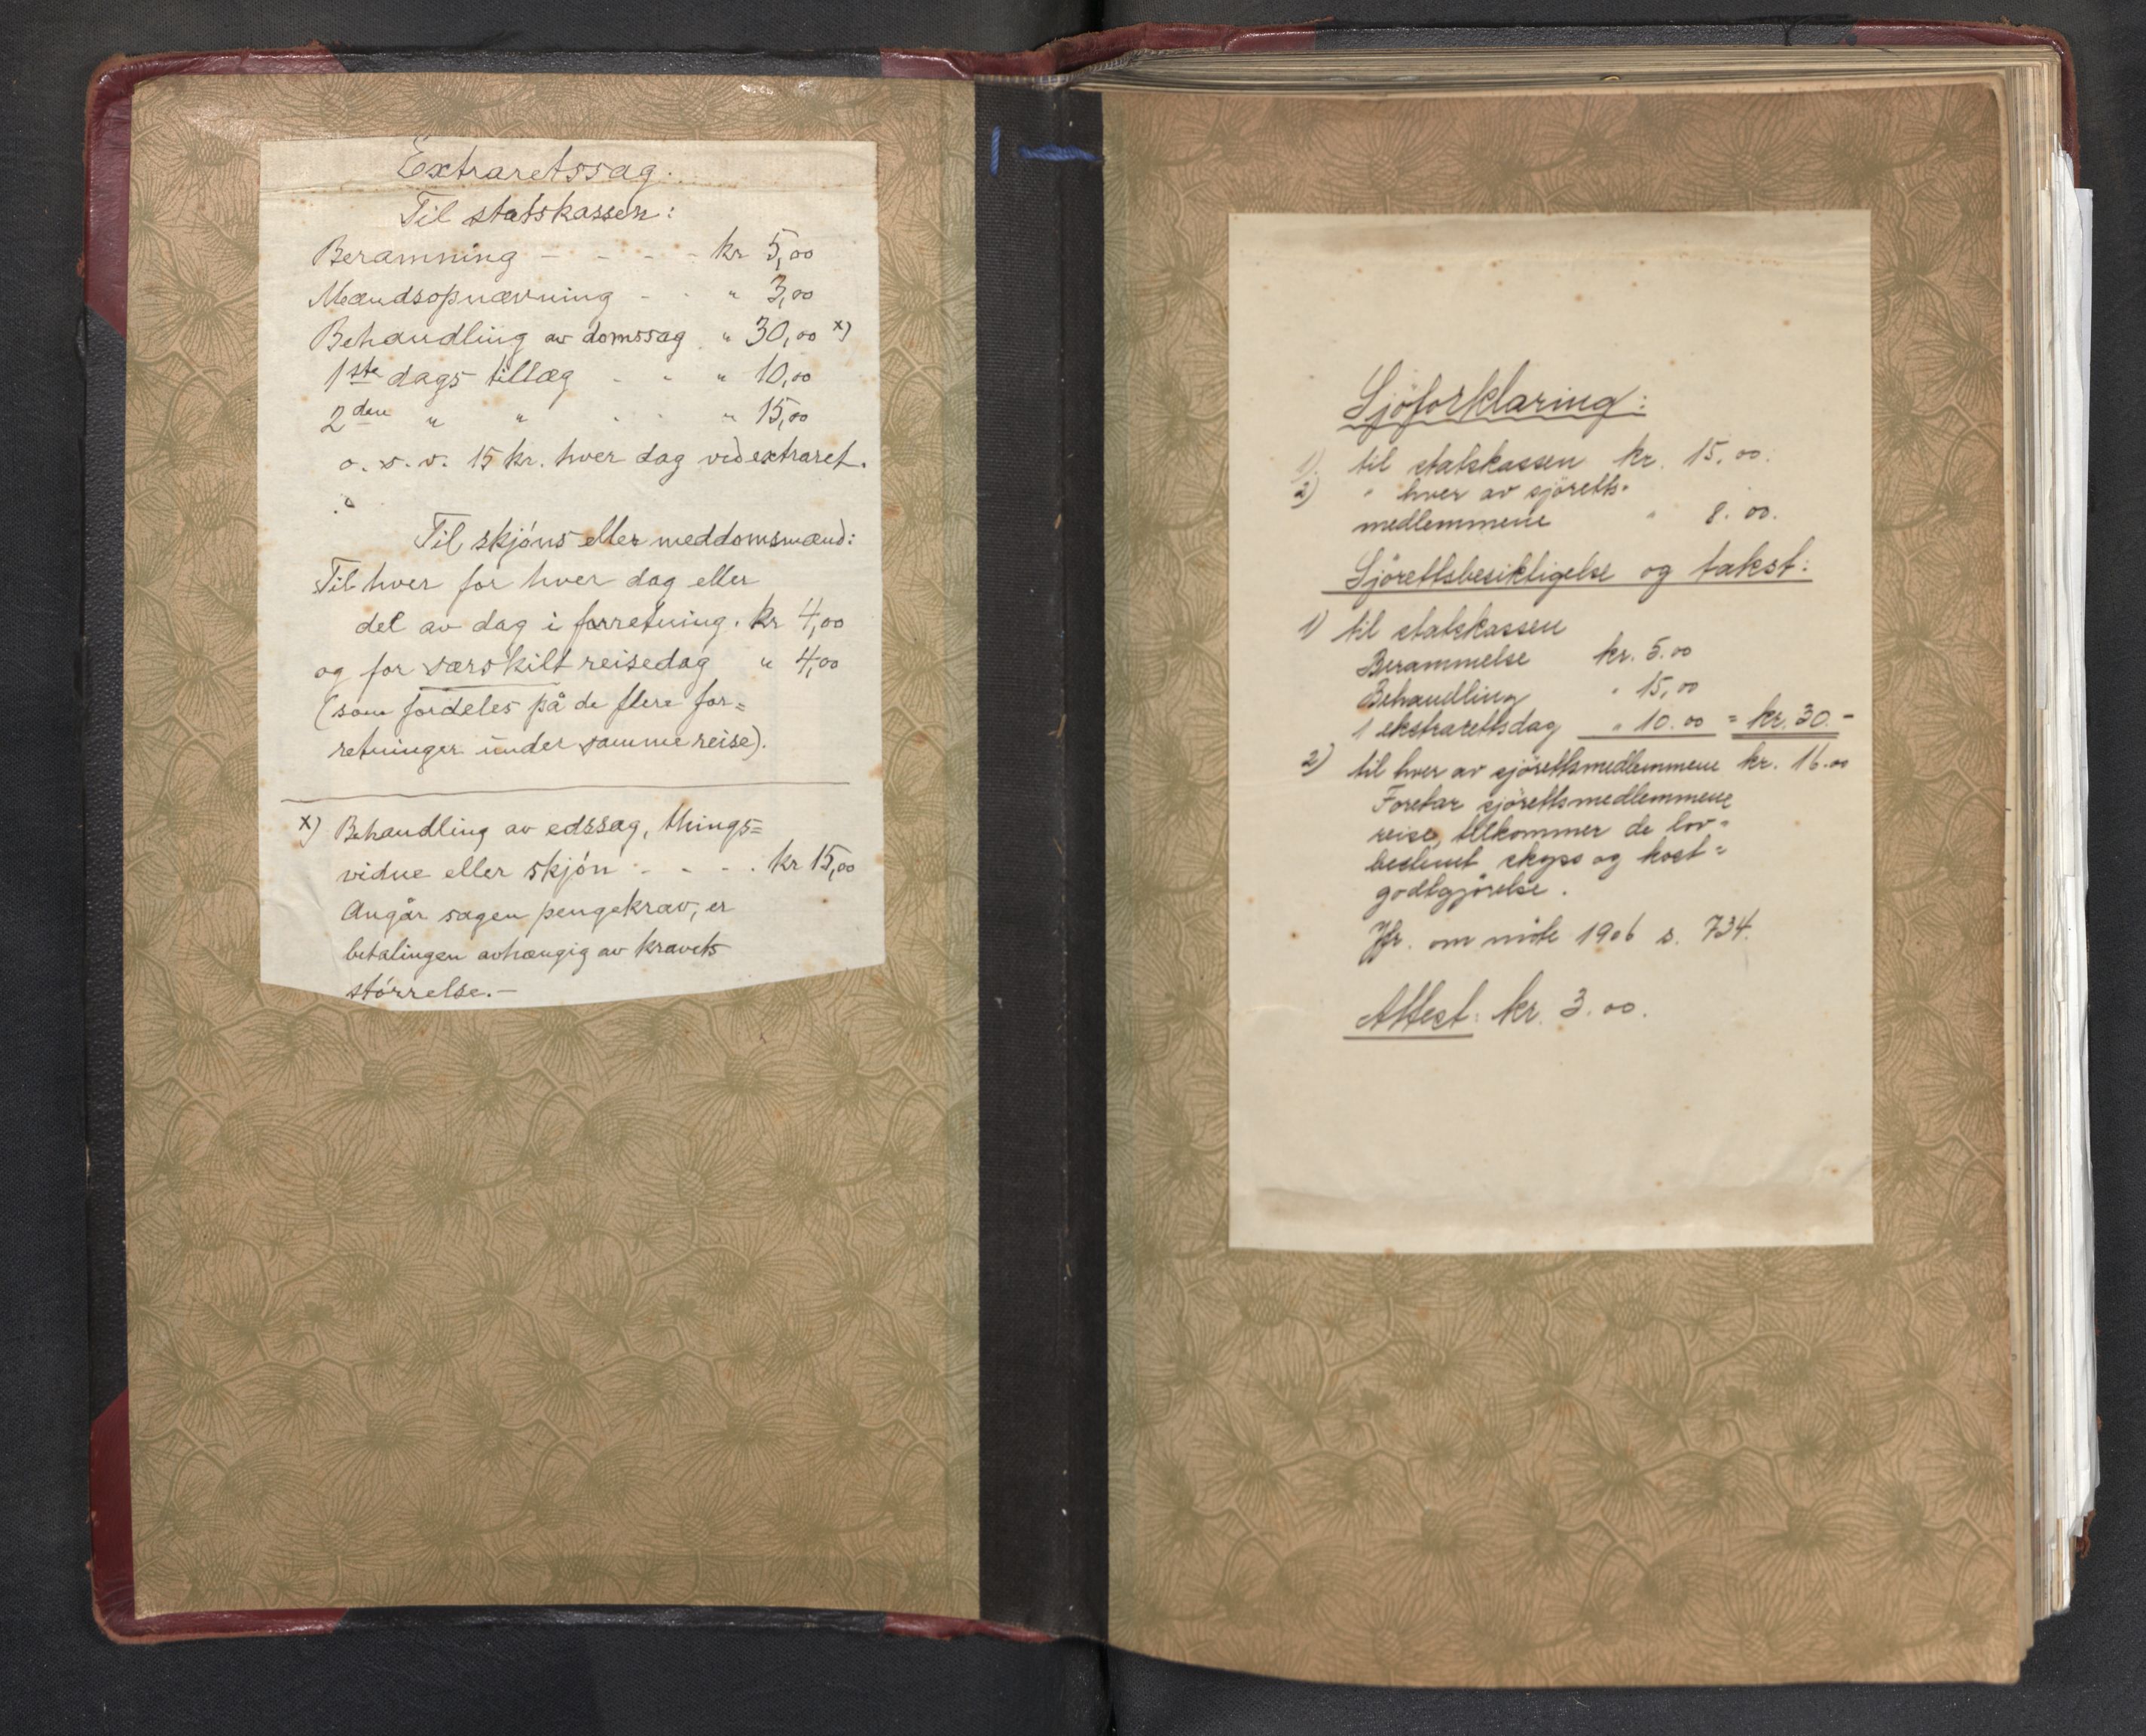 Extraretssag.
Til statskassen:
Beramning - - - - kr 5,00
Mændsopnævning - - " 3,00
Behandling av domssag " 30,00 x)
1ste dags tillæg - - " 10,00
2den " " - - " 15,00
o. s. v. 15 kr. hver dag ved extraret.
Til skjöns eller meddomsmænd:
Til hver for hver dag eller
del av dag i forretning. kr 4,00
og for særskilt reisedag " 4,00
(som fordeles på de flere for=
retninger under samme reise).
x) Behandling av edssag, things=
vidne eller skjön - - - . kr 15,00
Angår sagen pengekrav, er
betalingen avhængig av kravets
störrelse.-
Sjöforklaring:
1) til statskassen kr. 15.00.
2) " hver av sjöretts-
medlemmene " 8.00.
Sjörettsbesiktigelse og takst:
1) til statskassen
Berammelse kr. 5.00
Behandling " 15,00
1 ekstrarettsdag " 10.00 = kr. 30.-
2) til hver av sjörettsmedlemmene kr. 16.00
Foretar sjörettsmedlemmene
reise, tilkommer de lov-
bestemt skyss og kost=
godtgjörelse.
Jfr. om 1906 s. 734.
Attest: kr. 3.00.